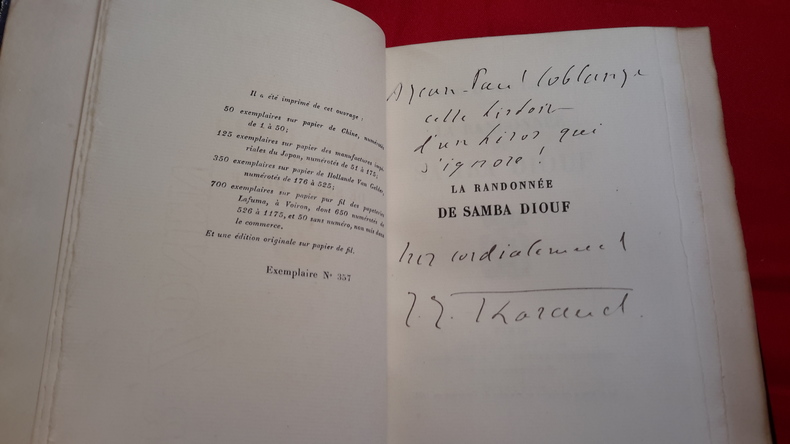 Il a été imprimé de cet ouvrage :
50 exemplaires sur papier de Chine, numérotés
de 1 à 50;
125 exemplaires sur papier des manufactures impé-
riales du Japon, numérotés de 51 à 175;
350 exemplaires sur papier de Hollande Van Gelder,
numérotés de 176 à 525;
700 exemplaires sur papier pur fil des papeteries
Lafuma, à Voiron, dont 650 numérotés de
526 à 1175, et 50 sans numéro, non mis dans
le commerce.
Et une édition originale sur papier de fil.
Exemplaire N° 357
A Jean-Paul
cette histoire
d'un héros qui
s'ignore !
LA RANDONNÉE
DE SAMBA DIOUF
très cordialement
J. J. Tharaud